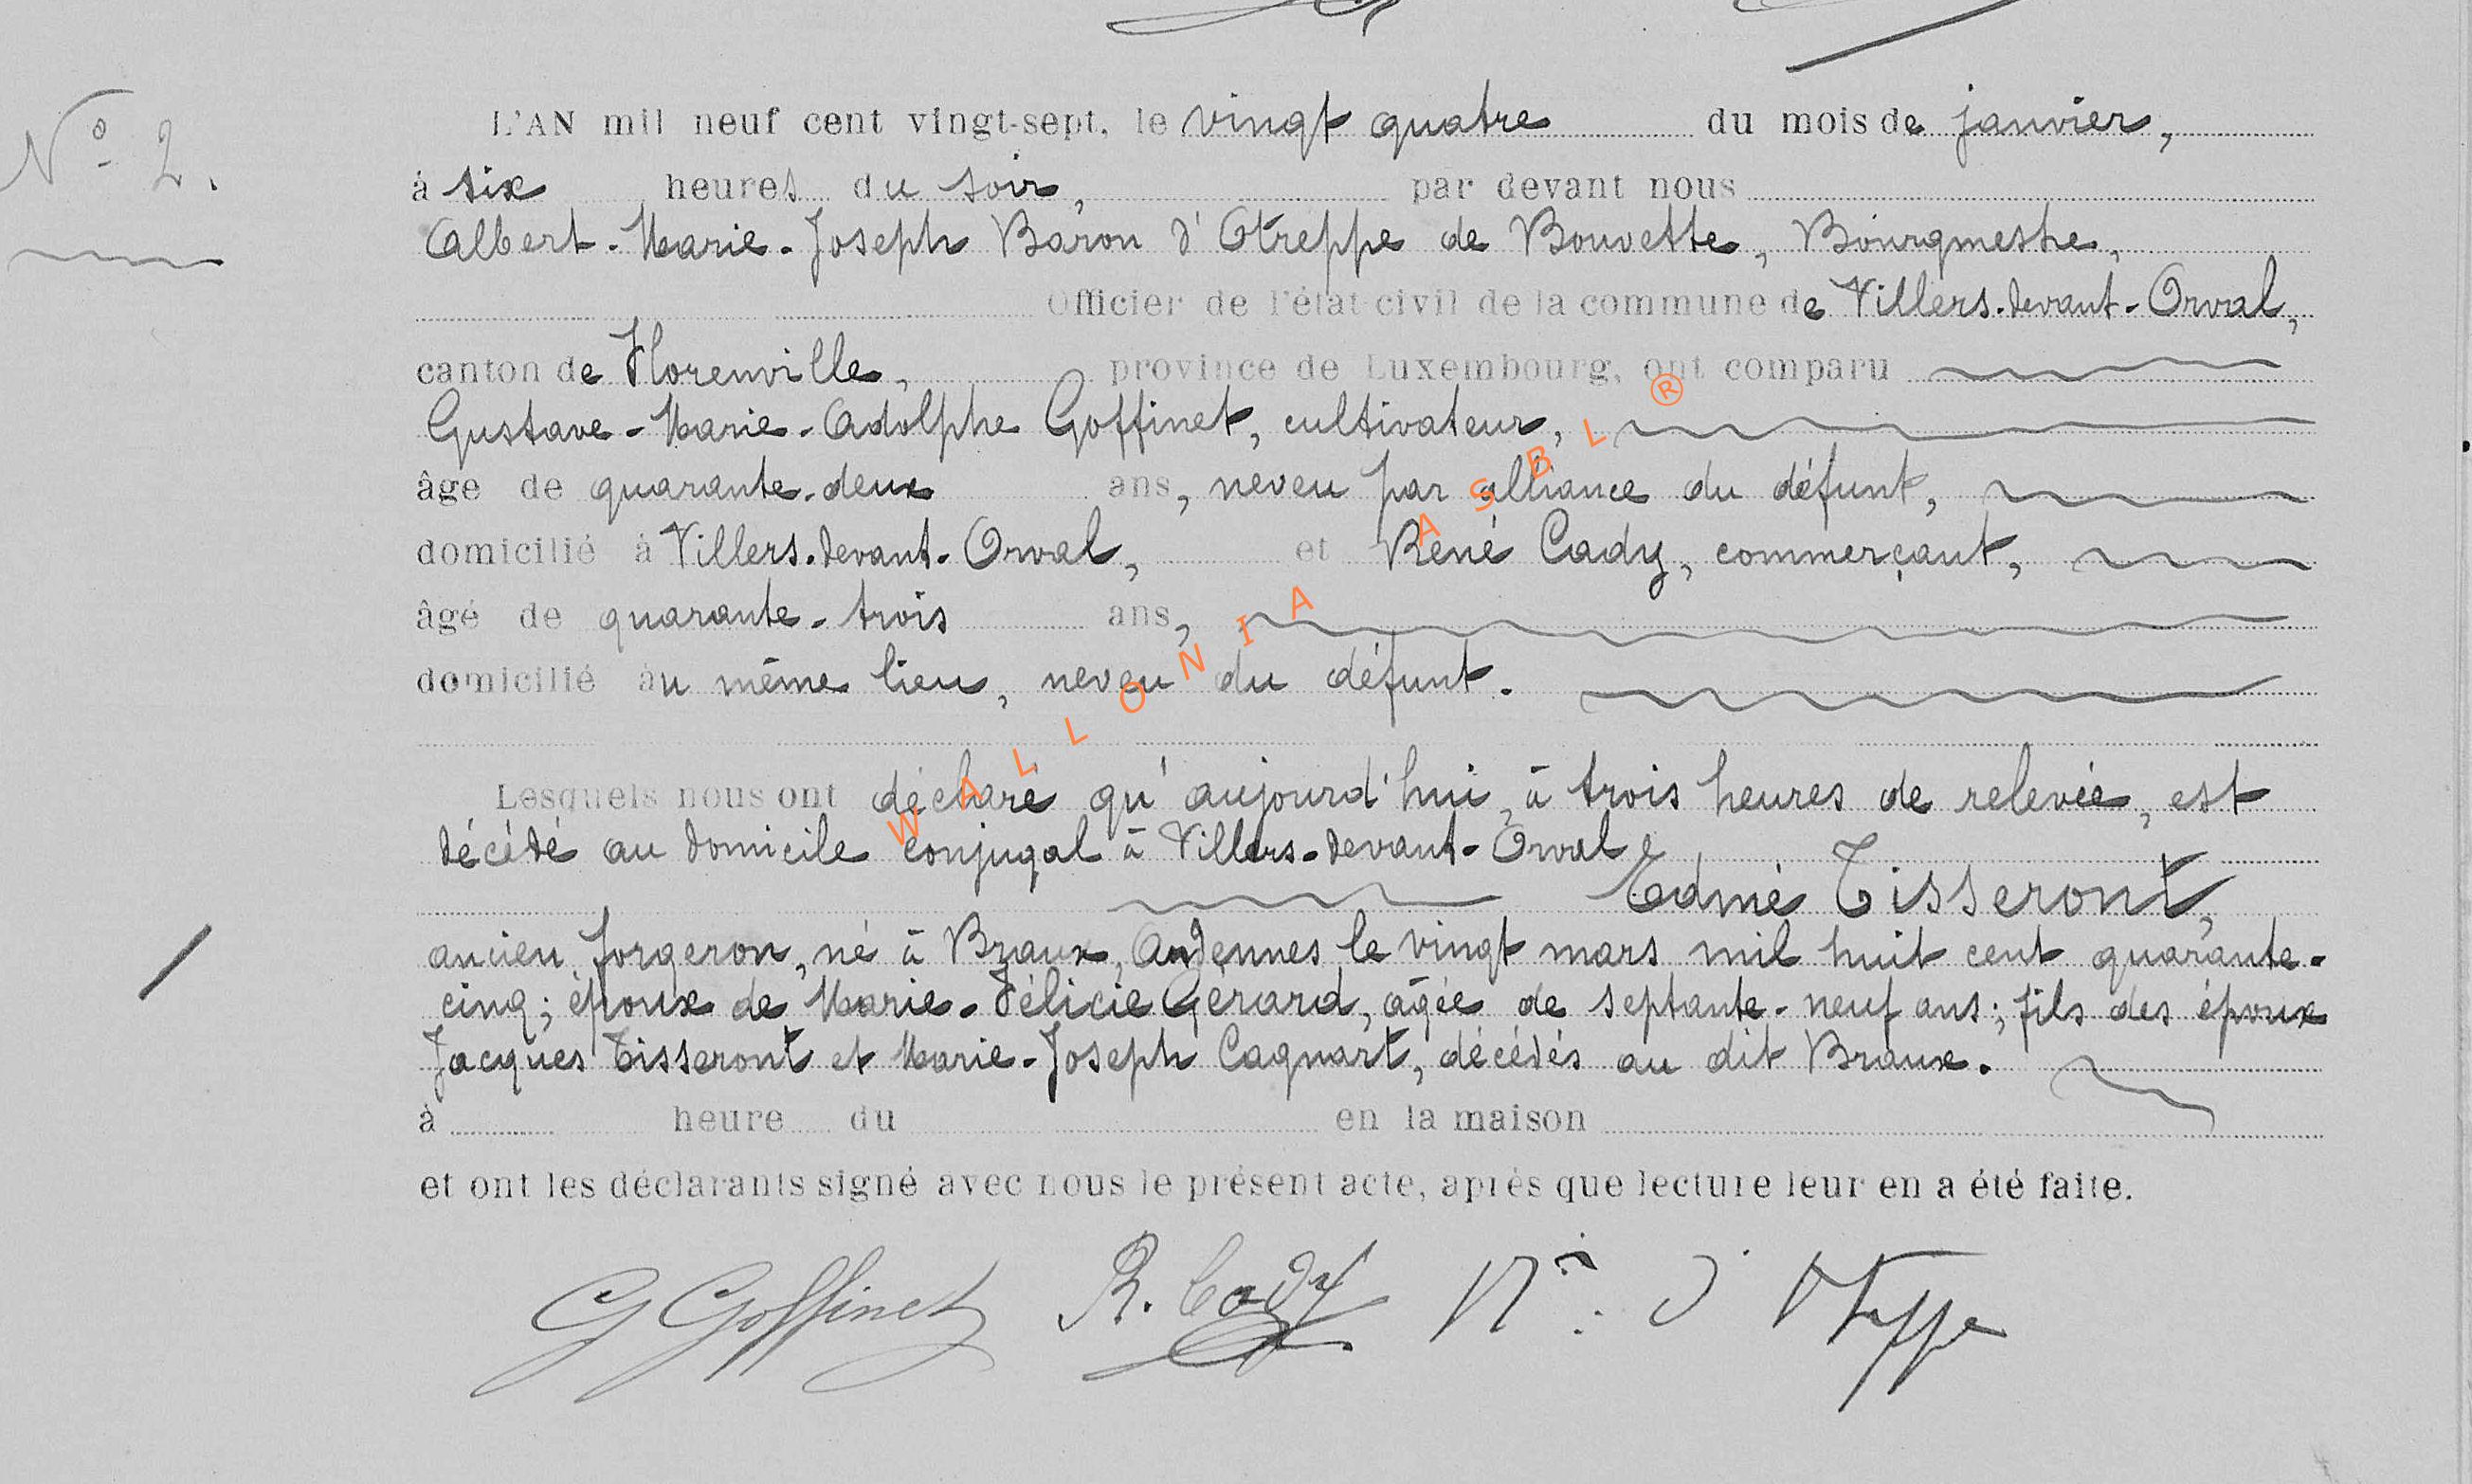 N° 2.
L'AN mil neuf cent vingt-sept, le vingt quatre du mois de janvier,
à six heures du soir, par devant nous
Albert-Marie-Joseph Baron d'Otreppe de Bouvette, Bourgmestre,
Officier de l'état civil de la commune de Villers-devant-Orval,
canton de Florenville, province de Luxembourg, ont comparu
Gustave-Marie-Adolphe Goffinet, cultivateur,
âge de quarante-deux ans, neveu par alliance du défunt,
domicilié à Villers-devant-Orval, et René Cady, commerçant,
âgé de quarante-trois ans,
domicilié au même lieu, neveu du défunt.
Lesquels nous ont déclaré qu'aujourd'hui, à trois heures de relevée, est
décédé au domicile conjugal à Villers-devant-Orval
Edmé Tisseront,
ancien forgeron, né à Braux, Ardennes le vingt mars mil huit cent quarante-
cinq; époux de Marie-Félicie Gérard, âgée de septante-neuf ans; fils des époux
Jacques Tisseront et Marie-Joseph Cagnart, décédés au dit Braux.
à heure du en la maison
et ont les déclarants signé avec nous le présent acte, après que lecture leur en a été faite.
G Goffinet R. Cady d'Otreppe
WALLONIA ASBL ®